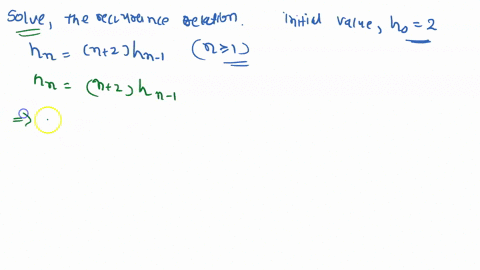 Solve, the recurrence relation. Initial value, h₀ = 2
hₙ = (n+2) hₙ₋₁ (n≥1)
hₙ = (n+2) hₙ₋₁
⇒